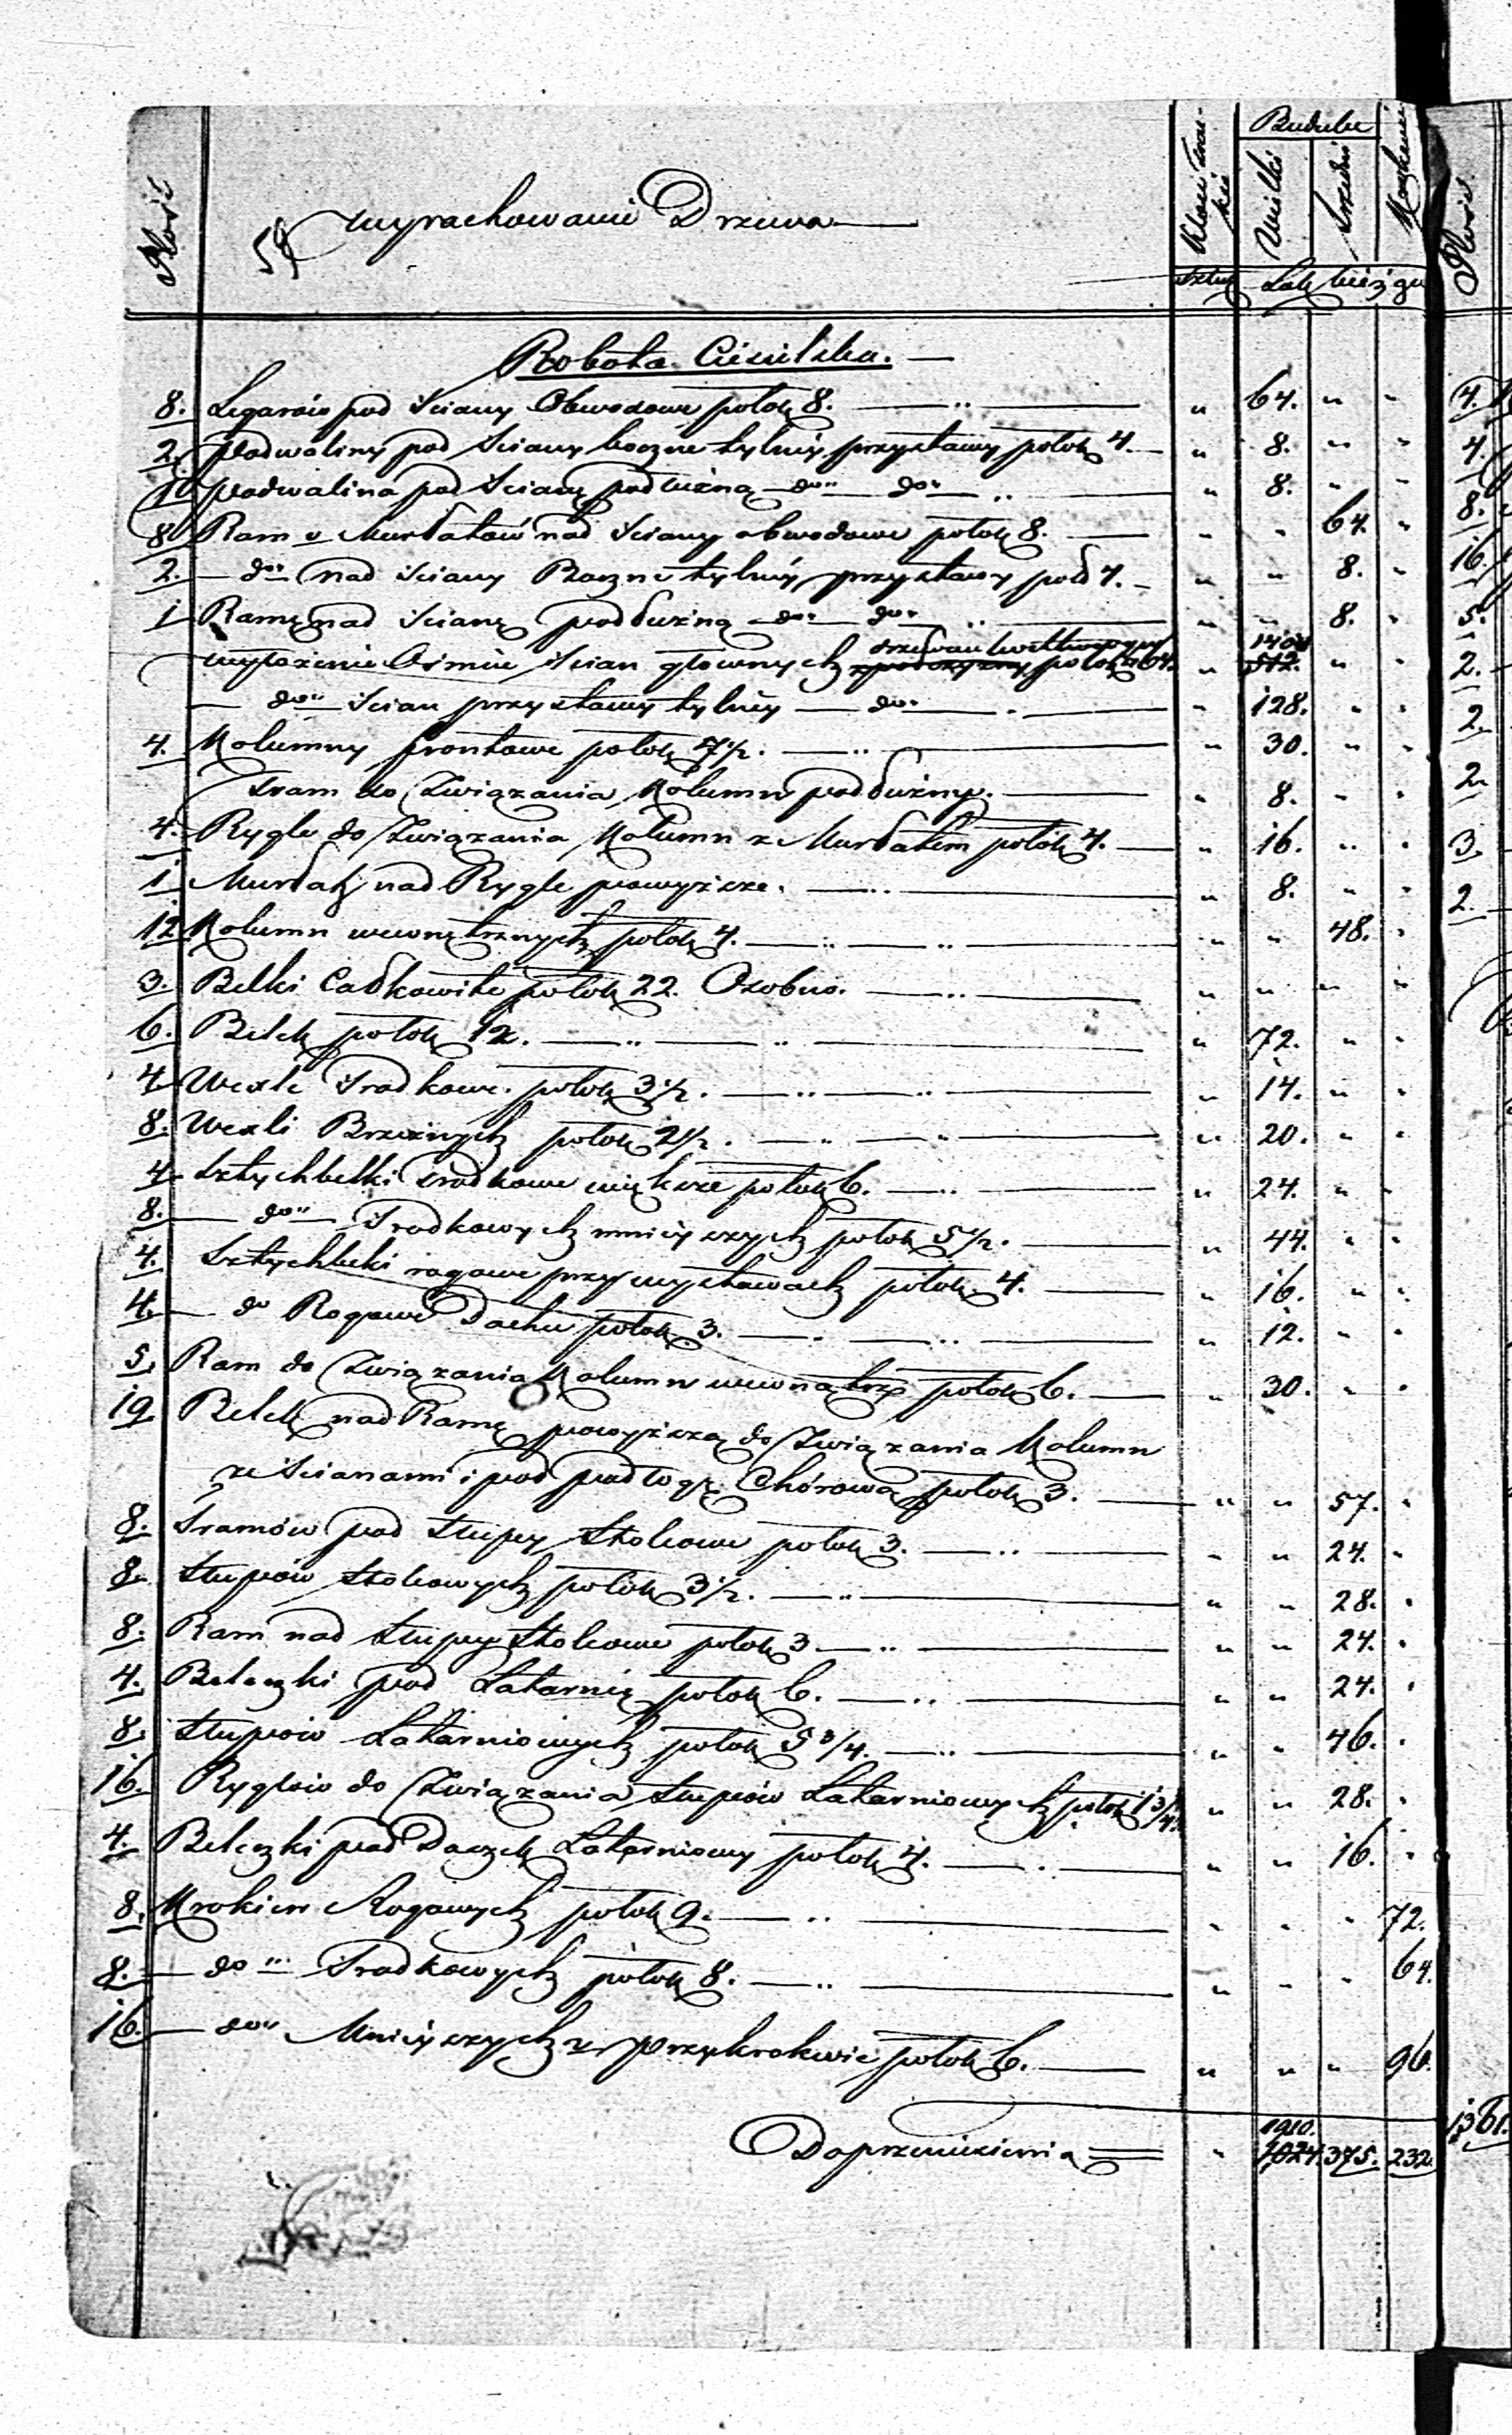 Ilość
Wyrachowanie Drzewa
Budulec
Wielki
Średni
Sztuk
Łok bieżące
Robota Ciesielska.
8. Legarów pod Sciany Obwodowe połok 8. " 64. " "
2. Podwaliny pod Sciany boczne tylnéy przystawy połok 4. " 8. " "
1. Podwalina pod Scianę podłużną do do " 8. " "
8. Ram v Murłatów nad Sciany obwodowe połok 8. " " 64. "
2. do nad Sciany Boczne tylnéy przystawy poło 4. " " 8. "
1 Ramę nad Scianę podłużną do do " " 8. "
wyłożenie Ośmiu Scian głownych połok " 512. " "
do Scian przystawy tylnéy do " 128. " "
4. Kolumny frontowe połok 7 1/2. " 30. " "
Tram do Związania Kolumn podłużny. " 8. " "
4. Rygle do Związania Kolumn z Murłatem połok 4. " 16. " "
1 Murłat nad Rygle powyższe. " 8. " "
12 Kolumn wewnętrznych połok 4. " " 48. "
3. Belki Całkowite połok 22. Osobno. " " " "
6. Belek połok 12. " 72. " "
4 Wexle Srodkowe połok 3 1/2. " 14. " "
8. Wexli Brzeżnych połok 2 1/2. " 20. " "
4 Sztychbelki srodkowe większe połok 6. " 24. " "
8. do Srodkowych mnieyszych połok 5 1/2. " 44. " "
4. Sztychbelki rogowe przy wystawach połok 4. " 16. " "
4. do Rogowe Dachu połok 3. " 12. " "
5. Ram do Związania Kolumn wewnątrz połok 6. " 30. " "
19 Belek nad Ramę powyższą do Związania Kolumn
ze Scianami i pod podłogę Chórową połok 3. " " 57. "
8. Tramów pod Słupy Stolcowe połok 3. " " 24. "
8. Słupów Stolcowych połok 3 1/2. " " 28. "
8. Ram nad Słupy Stolcowe połok 3 " " 24. "
4. Beleczki pod Latarnię połok 6. " " 24. "
8. Słupów Latarniowych połok 5 3/4. " " 46. "
16. Ryglów do Związania Słupów Latarniowych połok 1 3/4. " " 28. "
4. Beleczki pod Daszek Latarniowy połok 4. " " 16. "
8. Krokiew Rogowych połok 9. " " " 72.
8. do Srodkowych połok 8. " " " 64.
16. do Mnieyszych v przykrokwie połok 6. " " " 96.
1910.
Do przeniesienia " 1024. 375. 232.